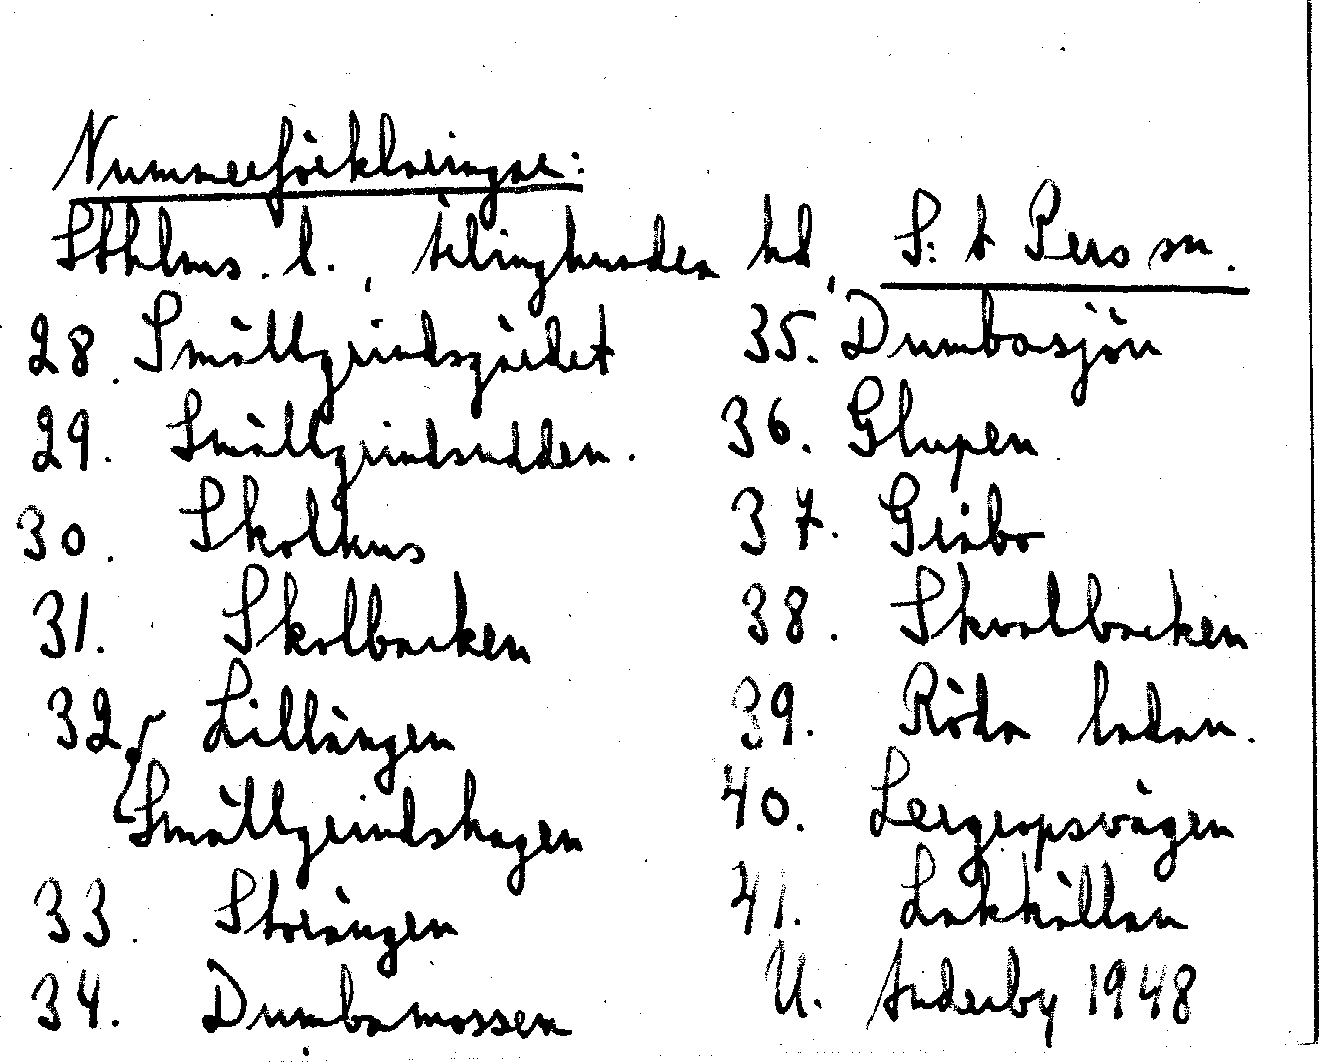 Nummerförklaringar:
Sthlms. l., Ärlinghundra hd, S:t Pers sn.
28. Smällgrindsgärdet
29. Smällgrindsudden.
30. Skolhus
31. Skolbacken
32. Lillängen
Smällgrindshagen
33. Storängen
34. Dumbamossen
35. Dumbasjön
36. Glupen
37. Gråbo
38. Skvalbacken
39. Röda ladan.
40. Lergropsvägen
41. Lukkällan
U. Anderby 1948